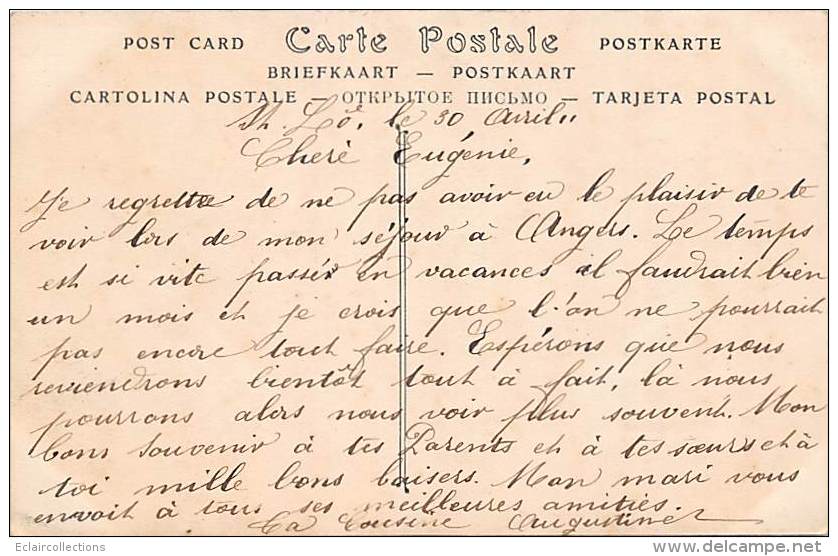 POST CARD Carte Postale POSTKARTE
BRIEFKAART — POSTKAART
CARTOLINA POSTALE — ОТКРЫТОЕ ПИСЬМО — TARJETA POSTAL
St. Lô, le 30 Avril
Cheré Eugénie,
Je regrette de ne pas avoir eu le plaisir de te
voir lors de mon séjour à Angers. Le temps
est si vite passér en vacances il faudrait bien
un mois et je crois que l'on ne pourrait
pas encore tout faire. Espérons que nous
reviendrons bientôt tout à fait, là nous
pourrons alors nous voir plus souvent. Mon
bons souvenir à tes Parents et à tes sœurs et à
toi mille bons baisers. Mon mari vous
envoit à tous ses meilleures amitiés.
Ta Cousine Augustine
Eclaircollections
www.delcampe.net